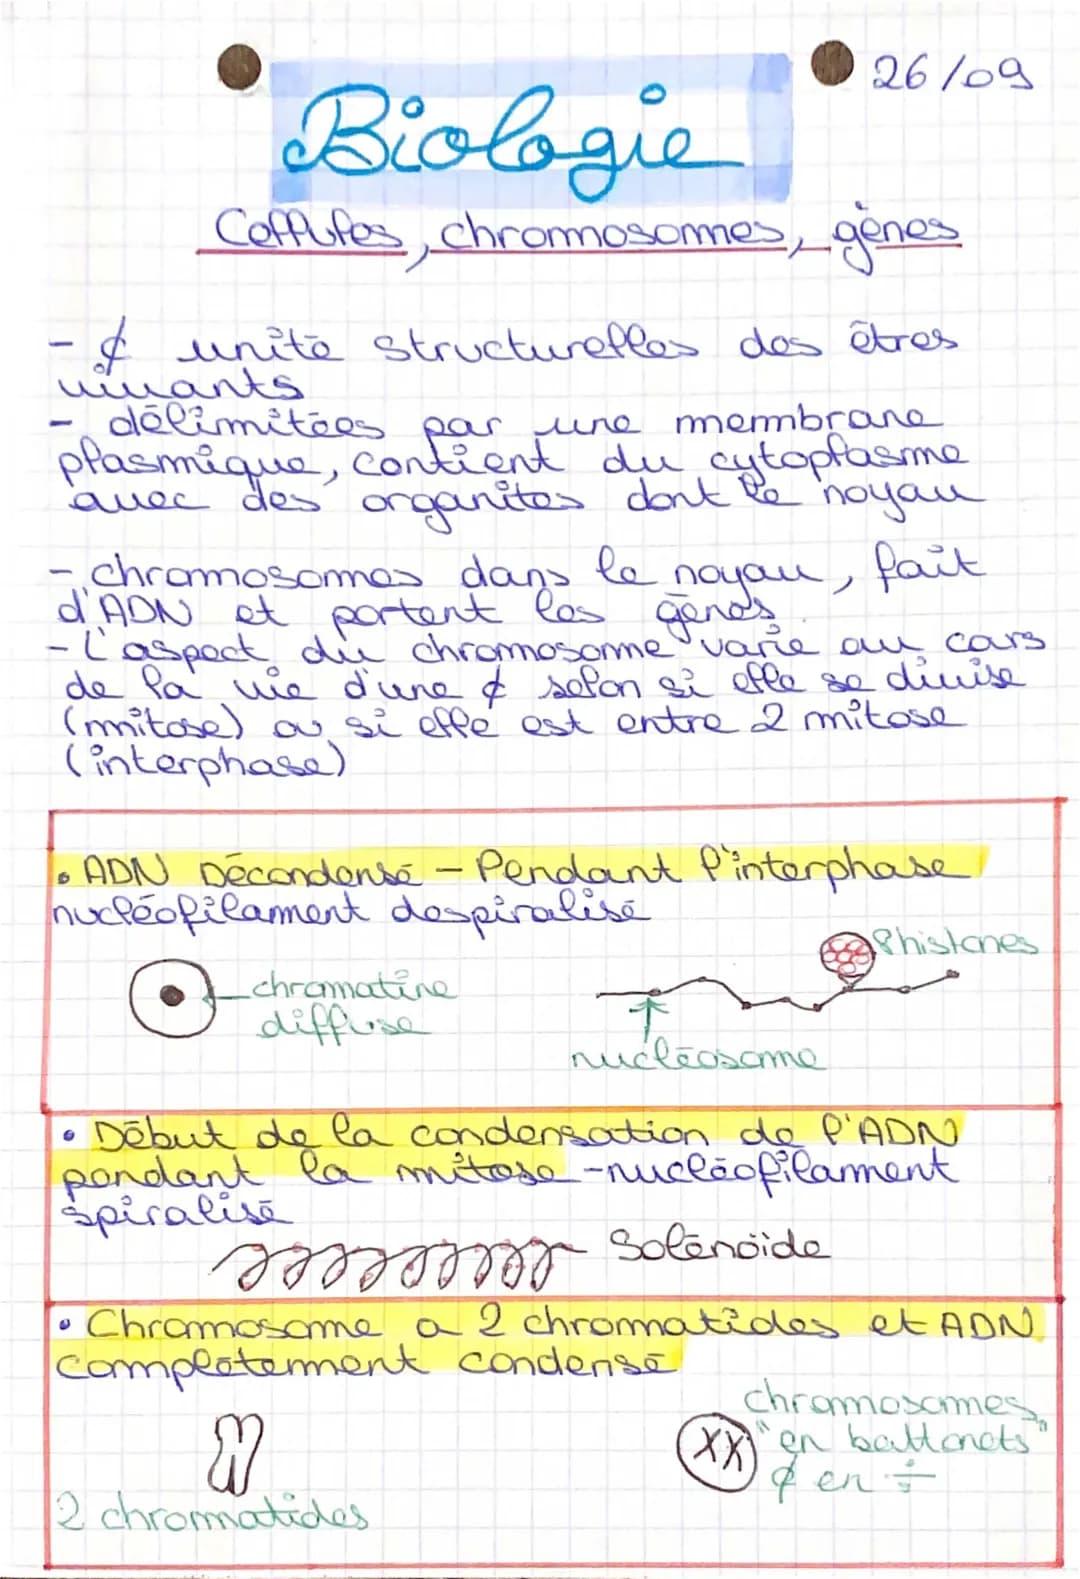 26/09
Biologie
Cellules, chromosomes, gènes
- ¢ unité structurelles des êtres
vivants
- délimitées par une membrane
plasmique, contient du cytoplasme
avec des organites dont le noyau
- chromosomes dans le noyau, fait
d'ADN et portent les gènes.
- L'aspect du chromosome varie au cours
de la vie d'une ¢ selon si elle se divise
(mitose) ou si elle est entre 2 mitose
(interphase)
• ADN Décondensé - Pendant l'interphase
nucléofilament despiralisé
8 histones
chromatine
diffuse
nucléosome
• Début de la condensation de l'ADN
pendant la mitose - nucléofilament
spiralisé
Solénoïde
• Chromosome a 2 chromatides et ADN
complètement condensé
chromosomes
"en battonets"
¢ en ÷
2 chromatides